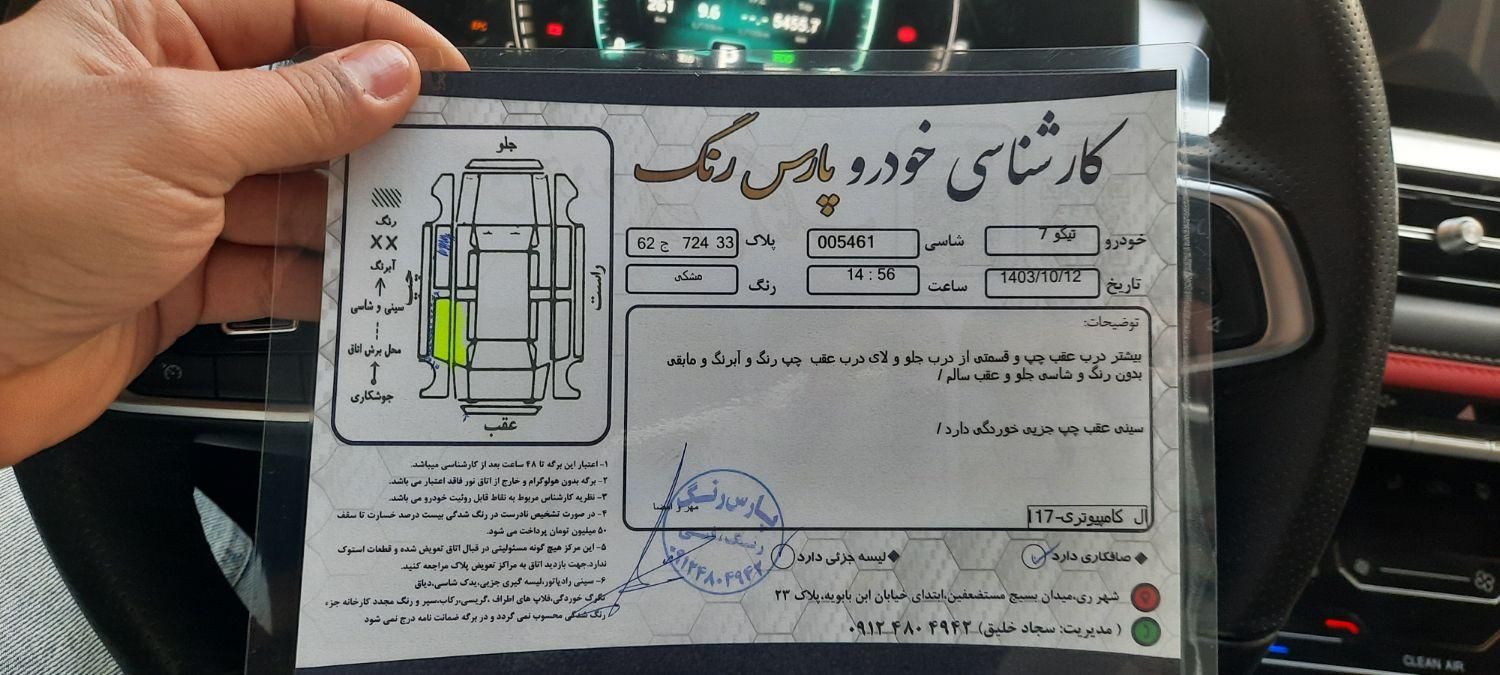 261 9.6 --.- 5455.7
EPC
ECO
کارشناسی خودرو پارس رنگ
خودرو تیگو 7 شاسی 005461 پلاک 33 724 ج 62
تاریخ 1403/10/12 ساعت 14 : 56 رنگ مشکی
توضیحات:
بیشتر درب عقب چپ و قسمتی از درب جلو و لای درب عقب چپ رنگ و آبرنگ و مابقی
بدون رنگ و شاسی جلو و عقب سالم /
سینی عقب چپ جزیی خوردگی دارد /
ال کامپیوتری-117
مهر و امضا
پارس رنگ
۰۹۱۲۴۸۰۴۹۴۲
◆ صافکاری دارد ◆ لیسه جزئی دارد
شهر ری،میدان بسیج مستضعفین،ابتدای خیابان ابن بابویه،پلاک ۲۳
( مدیریت: سجاد خلیق) ۰۹۱۲ ۴۸۰ ۴۹۴۲
جلو
رنگ
XX
آبرنگ
سینی و شاسی
محل برش اتاق
جوشکاری
چپ
راست
عقب
۱- اعتبار این برگه تا ۴۸ ساعت بعد از کارشناسی میباشد.
۲- برگه بدون هولوگرام و خارج از اتاق نور فاقد اعتبار می باشد.
۳- نظریه کارشناس مربوط به نقاط قابل روئیت خودرو می باشد.
۴- در صورت تشخیص نادرست در رنگ شدگی بیست درصد خسارت تا سقف
۵۰ میلیون تومان پرداخت می شود.
۵- این مرکز هیچ گونه مسئولیتی در قبال اتاق تعویض شده و قطعات استوک
ندارد.جهت بازدید اتاق به مراکز تعویض پلاک مراجعه کنید.
۶- سینی رادیاتور،لیسه گیری جزیی،یدک شاسی،دیاق
تگرگ خوردگی،قلاب های اطراف ،گریسی،رکاب،سپر و رنگ مجدد کارخانه جزء
رنگ شدگی محسوب نمی گردد و در برگه ضمانت نامه درج نمی شود
CLEAN AIR